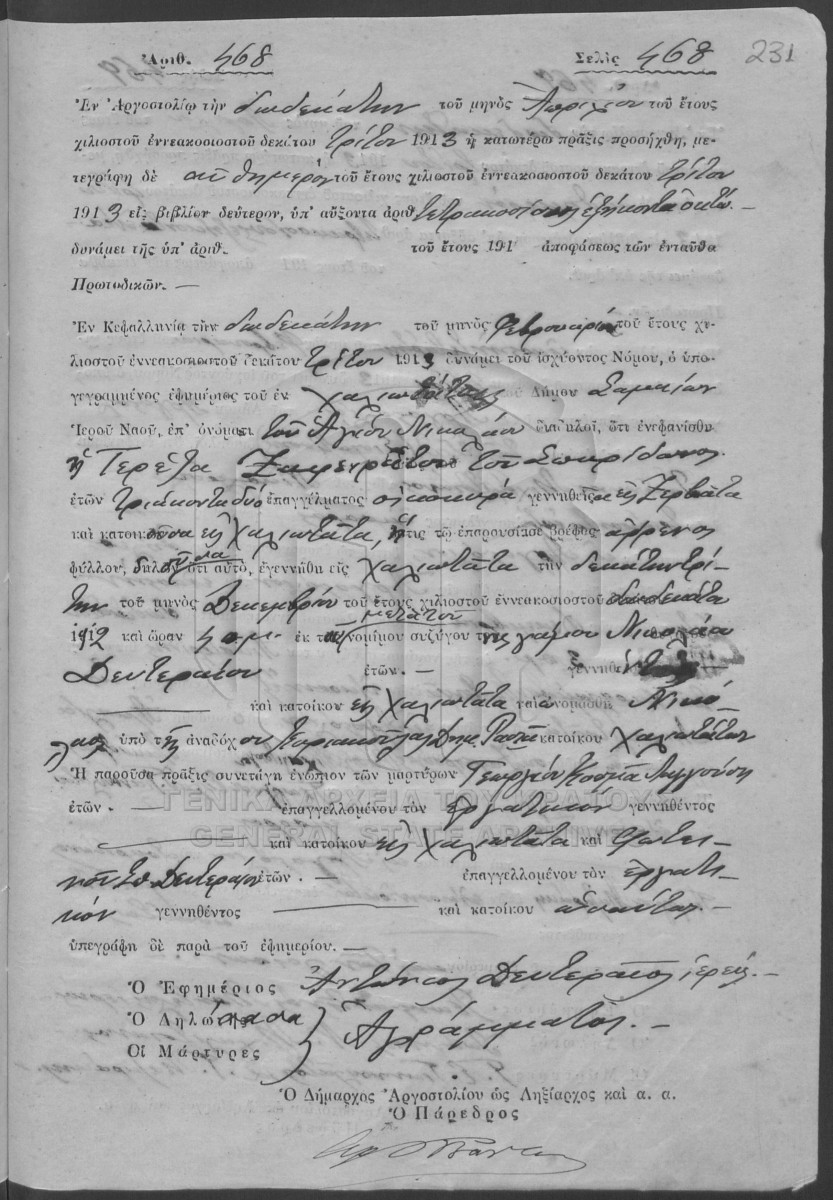 Ἀριθ. 468 Σελὶς 468 231
Ἐν Ἀργοστολίῳ τὴν δωδεκάτην τοῦ μηνὸς Ἀπριλίου τοῦ ἔτους
χιλιοστοῦ ἐννεακοσιοστοῦ δεκάτου τρίτου 1913 ἡ κατωτέρω πρᾶξις προσήχθη, με-
τεγράφη δὲ αὐθημερόν τοῦ ἔτους χιλιοστοῦ ἐννεακοσιοστοῦ δεκάτου τρίτου
1913 εἰς βιβλίον δεύτερον, ὑπ' αὔξοντα ἀριθ. τετρακοσιοστὸν ἑξήκοντα ὀκτώ.–
δυνάμει τῆς ὑπ' ἀριθ. τοῦ ἔτους 191 ἀποφάσεως τῶν ἐνταῦθα
Πρωτοδικῶν. —
Ἐν Κεφαλληνίᾳ τὴν δωδεκάτην τοῦ μηνὸς Φεβρουαρίου τοῦ ἔτους χι-
λιοστοῦ ἐννεακοσιοστοῦ δεκάτου τρίτου 1913 δυνάμει τοῦ ἰσχύοντος Νόμου, ὁ ὑπο-
γεγραμμένος ἐφημέριος τοῦ ἐν Χαλιωτάτα τοῦ Δήμου Σαμαίων
Ἱεροῦ Ναοῦ, ἐπ' ὀνόματι τοῦ Ἁγίου Νικολάου διαδηλοῖ, ὅτι ἐνεφανίσθη
ἡ Τερέζα τοῦ Σπυρίδωνος
ἐτῶν τριάκοντα δύο ἐπαγγέλματος οἰκοκυρά γεννηθεῖσα εἰς Ζερβάτα
καὶ κατοικοῦσα εἰς Χαλιωτάτα, ἥτις τῷ ἐπαρουσίασε βρέφος ἄρρενος
φύλλου, δηλοῦσα ὅτι αὐτὸ, ἐγεννήθη εἰς Χαλιωτάτα τὴν δεκάτην τρί-
την τοῦ μηνὸς Δεκεμβρίου τοῦ ἔτους χιλιοστοῦ ἐννεακοσιοστοῦ δωδεκάτου
1912 καὶ ὥραν 4 π.μ. ἐκ τοῦ μετὰ τοῦ νομίμου συζύγου της γάμου Νικολάου
Δευτεραίου ἐτῶν. – γεννηθέντος
— καὶ κατοίκου εἰς Χαλιωτάτα καὶ ὠνομάσθη Νικό-
λαος ὑπὸ τῆς ἀναδόχου Κυριακούλας Δημ. κατοίκου Χαλιωτάτων
Ἡ παροῦσα πρᾶξις συνετάγη ἐνώπιον τῶν μαρτύρων Γεωργίου Κοσμᾶ
ἐτῶν. — ἐπαγγελλομένου τὸν ἐργατικόν γεννηθέντος
— καὶ κατοίκου εἰς Χαλιωτάτα καὶ Φωτει-
νοῦ Σπ. Δευτεραίου ἐτῶν. – ἐπαγγελλομένου τὸν ἐργατι-
κόν γεννηθέντος — καὶ κατοίκου ὡσαύτως.–
ὑπεγράφη δὲ παρὰ τοῦ ἐφημερίου. —
Ὁ Ἐφημέριος Ἀντώνιος Δευτεραῖος ἱερεύς.–
Ὁ Δηλώσασα
Οἱ Μάρτυρες } Ἀγράμματοι.–
Ὁ Δήμαρχος Ἀργοστολίου ὡς Ληξίαρχος καὶ α. α.
Ὁ Πάρεδρος
ΓΕΝΙΚΑ ΑΡΧΕΙΑ ΤΟΥ ΚΡΑΤΟΥΣ
GENERAL STATE ARCHIVES